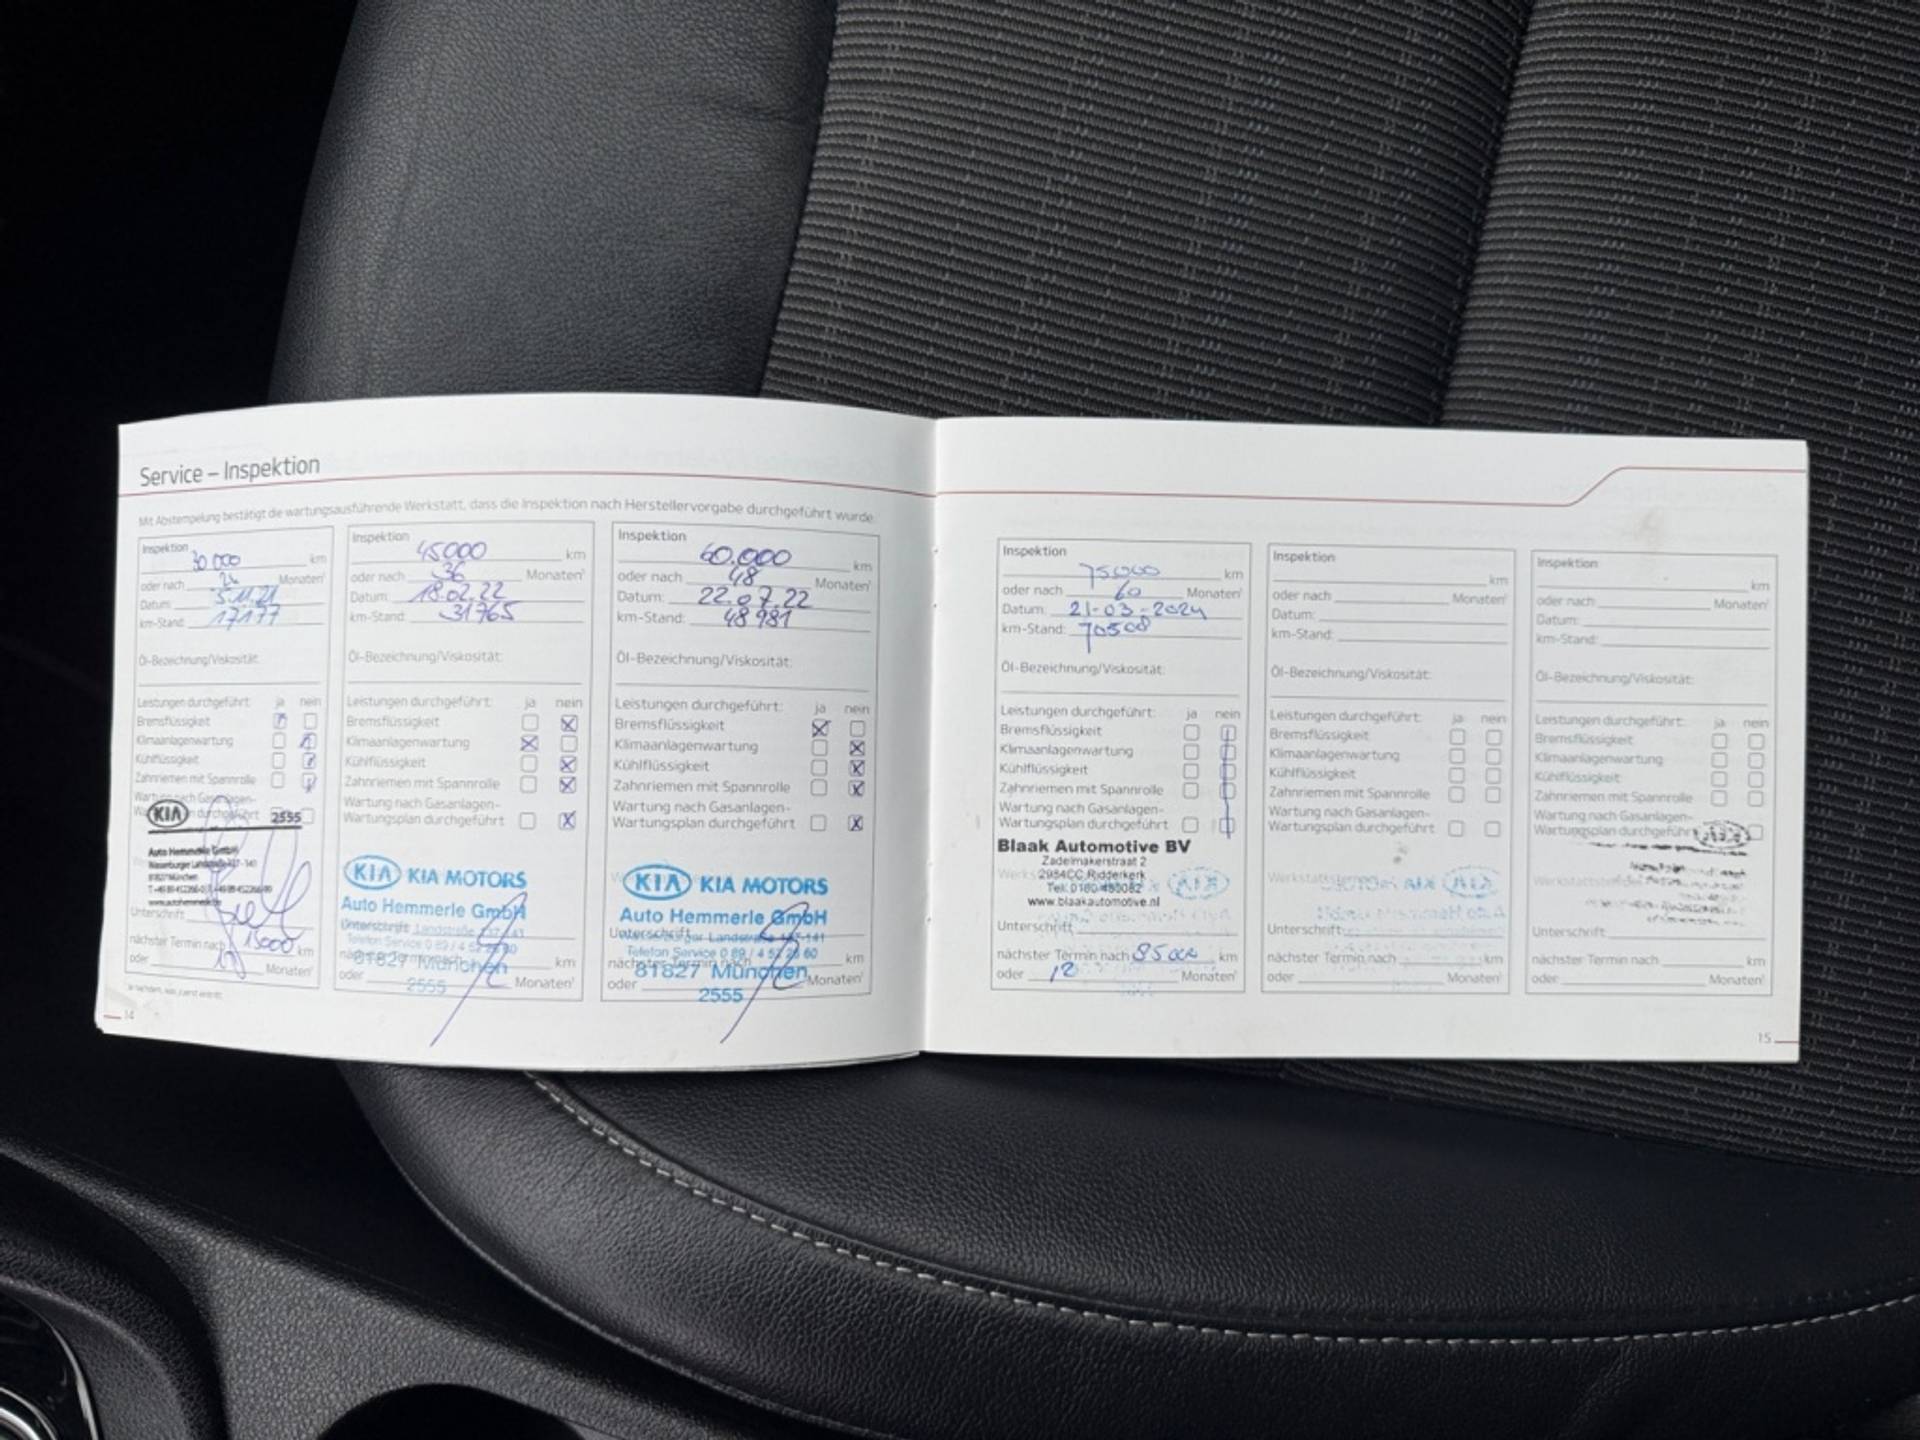 Service – Inspektion
Mit Abstempelung bestätigt die wartungsausführende Werkstatt, dass die Inspektion nach Herstellervorgabe durchgeführt wurde.
Inspektion
30.000 km
oder nach 24 Monaten¹
Datum: 5.11.21
km-Stand: 17177
Öl-Bezeichnung/Viskosität:
Leistungen durchgeführt: ja nein
Bremsflüssigkeit
Klimaanlagenwartung
Kühlflüssigkeit
Zahnriemen mit Spannrolle
Wartung nach Gasanlagen-
durchgeführt
KIA 2555
Auto Hemmerle GmbH
81827 München
www.autohemmerle.de
Unterschrift
nächster Termin nach 15000 km
oder Monaten¹
14
Inspektion
45000 km
oder nach 36 Monaten¹
Datum: 18.02.22
km-Stand: 31765
Öl-Bezeichnung/Viskosität:
Leistungen durchgeführt: ja nein
Bremsflüssigkeit
Klimaanlagenwartung
Kühlflüssigkeit
Zahnriemen mit Spannrolle
Wartung nach Gasanlagen-
Wartungsplan durchgeführt
KIA KIA MOTORS
Auto Hemmerle GmbH
Unterschrift
81827 München km
oder 2555 Monaten¹
Inspektion
60.000 km
oder nach 48 Monaten¹
Datum: 22.07.22
km-Stand: 48981
Öl-Bezeichnung/Viskosität:
Leistungen durchgeführt: ja nein
Bremsflüssigkeit
Klimaanlagenwartung
Kühlflüssigkeit
Zahnriemen mit Spannrolle
Wartung nach Gasanlagen-
Wartungsplan durchgeführt
KIA KIA MOTORS
Auto Hemmerle GmbH
Unterschrift
Telefon Service 0 89 / 4 52 26 60
nächster Termin nach km
81827 München
oder Monaten¹
2555
Inspektion
75000 km
oder nach 60 Monaten¹
Datum: 21-03-2024
km-Stand: 70508
Öl-Bezeichnung/Viskosität:
Leistungen durchgeführt: ja nein
Bremsflüssigkeit
Klimaanlagenwartung
Kühlflüssigkeit
Zahnriemen mit Spannrolle
Wartung nach Gasanlagen-
Wartungsplan durchgeführt
Blaak Automotive BV
Zadelmakerstraat 2
2984CC Ridderkerk
www.blaakautomotive.nl
Unterschrift
nächster Termin nach 85000 km
oder 12 Monaten¹
Inspektion
km
oder nach Monaten¹
Datum:
km-Stand:
Öl-Bezeichnung/Viskosität:
Leistungen durchgeführt: ja nein
Bremsflüssigkeit
Klimaanlagenwartung
Kühlflüssigkeit
Zahnriemen mit Spannrolle
Wartung nach Gasanlagen-
Wartungsplan durchgeführt
Unterschrift:
nächster Termin nach km
oder Monaten¹
Inspektion
km
oder nach Monaten¹
Datum:
km-Stand:
Öl-Bezeichnung/Viskosität:
Leistungen durchgeführt: ja nein
Bremsflüssigkeit
Klimaanlagenwartung
Kühlflüssigkeit
Zahnriemen mit Spannrolle
Wartung nach Gasanlagen-
Wartungsplan durchgeführt
Unterschrift
nächster Termin nach km
oder Monaten¹
15